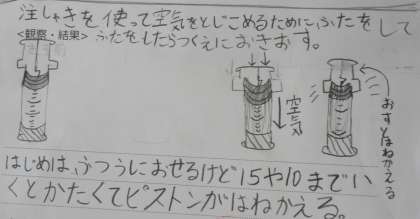 注しゃきを使って空気をとじこめるためにふたをして
<観察・結果>ふたをしたらつくえにおきおす。
空気
おすとはねかえる
はじめは、ふつうにおせるけど15や10までい
くとかたくてピストンがはねかえる。